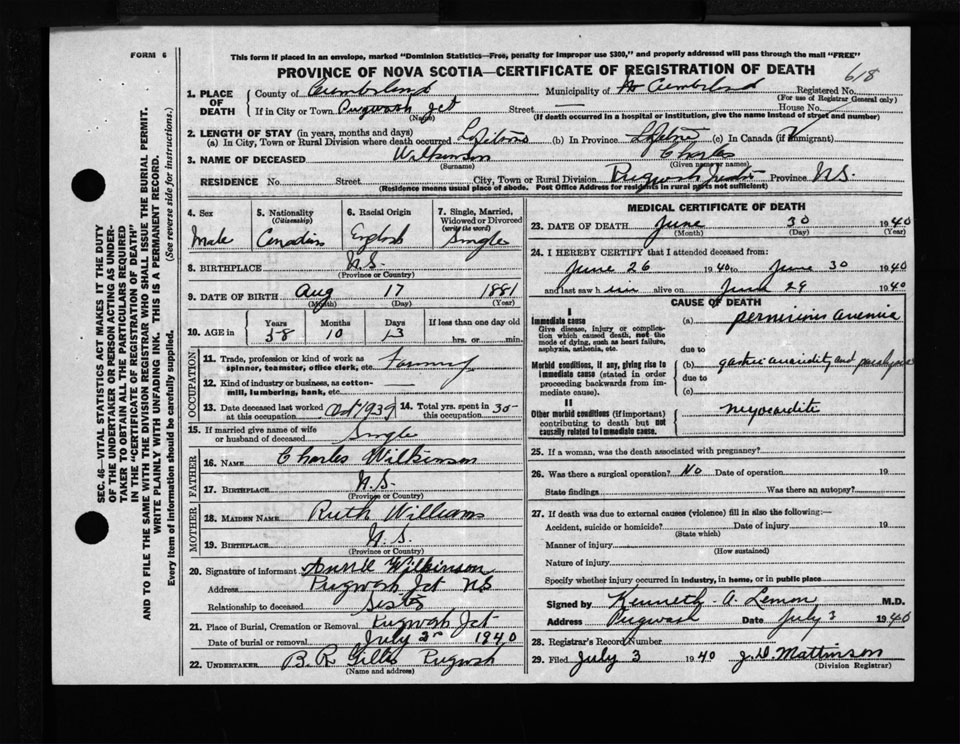 FORM 6
This form if placed in an envelope, marked "Dominion Statistics—Free, penalty for improper use $300," and properly addressed will pass through the mail "FREE"
PROVINCE OF NOVA SCOTIA—CERTIFICATE OF REGISTRATION OF DEATH
618
1. PLACE OF DEATH County of Cumberland Municipality of Cumberland Registered No.
(For use of Registrar General only)
If in City or Town Pugwash Jct Street — House No.
(Name) (If death occurred in a hospital or institution, give the name instead of street and number)
2. LENGTH OF STAY (in years, months and days)
(a) In City, Town or Rural Division where death occurred Lifetime (b) In Province Lifetime (c) In Canada (if immigrant)
3. NAME OF DECEASED Wilkinson Charles
(Surname) (Given name or names)
RESIDENCE No. Street City, Town or Rural Division Pugwash Province N.S.
(Residence means usual place of abode. Post Office Address for residents in rural parts not sufficient)
4. Sex Male
5. Nationality (Citizenship) Canadian
6. Racial Origin English
7. Single, Married, Widowed or Divorced (write the word) Single
8. BIRTHPLACE N.S.
(Province or Country)
9. DATE OF BIRTH Aug 17 1881
(Month) (Day) (Year)
10. AGE in Years Months Days If less than one day old
58 10 13 hrs. or min.
OCCUPATION
11. Trade, profession or kind of work as spinner, teamster, office clerk, etc.
12. Kind of industry or business, as cotton-mill, lumbering, bank, etc. —
13. Date deceased last worked at this occupation Oct 1939
14. Total yrs. spent in this occupation 35
15. If married give name of wife or husband of deceased Single
FATHER
16. NAME Charles Wilkinson
17. BIRTHPLACE N.S.
(Province or Country)
MOTHER
18. MAIDEN NAME Ruth Williams
19. BIRTHPLACE N.S.
(Province or Country)
20. Signature of informant Annie Wilkinson
Address Pugwash Jct N.S
Relationship to deceased Sister
21. Place of Burial, Cremation or Removal Pugwash Jct
Date of burial or removal July 2 1940
22. UNDERTAKER B. R. Gillis Pugwash
(Name and address)
MEDICAL CERTIFICATE OF DEATH
23. DATE OF DEATH June 30 1940
(Month) (Day) (Year)
24. I HEREBY CERTIFY that I attended deceased from:
June 26 1940 to June 30 1940
and last saw him alive on June 29 1940
CAUSE OF DEATH
I
Immediate cause
Give disease, injury or complication which caused death, not the mode of dying, such as heart failure, asphyxia, asthenia, etc.
(a) pernicious anemia
due to
Morbid conditions, if any, giving rise to immediate cause (stated in order proceeding backwards from immediate cause).
(b) and
due to
(c)
II
Other morbid conditions (if important) contributing to death but not causally related to immediate cause.
myocarditis
25. If a woman, was the death associated with pregnancy?
26. Was there a surgical operation? No Date of operation 19
State findings Was there an autopsy?
27. If death was due to external causes (violence) fill in also the following:—
Accident, suicide or homicide? Date of injury 19
(State which)
Manner of injury
(How sustained)
Nature of injury
Specify whether injury occurred in industry, in home, or in public place
Signed by Kenneth A. Lemon M.D.
Address Pugwash Date July 3 1940
28. Registrar's Record Number
29. Filed July 3 1940 J. D. Mattinson
(Division Registrar)
SEC. 46—VITAL STATISTICS ACT MAKES IT THE DUTY
OF THE UNDERTAKER OR PERSON ACTING AS UNDER-
TAKER TO OBTAIN ALL THE PARTICULARS REQUIRED
IN THE "CERTIFICATE OF REGISTRATION OF DEATH"
AND TO FILE THE SAME WITH THE DIVISION REGISTRAR WHO SHALL ISSUE THE BURIAL PERMIT.
WRITE PLAINLY WITH UNFADING INK. THIS IS A PERMANENT RECORD.
Every item of information should be carefully supplied. (See reverse side for instructions.)